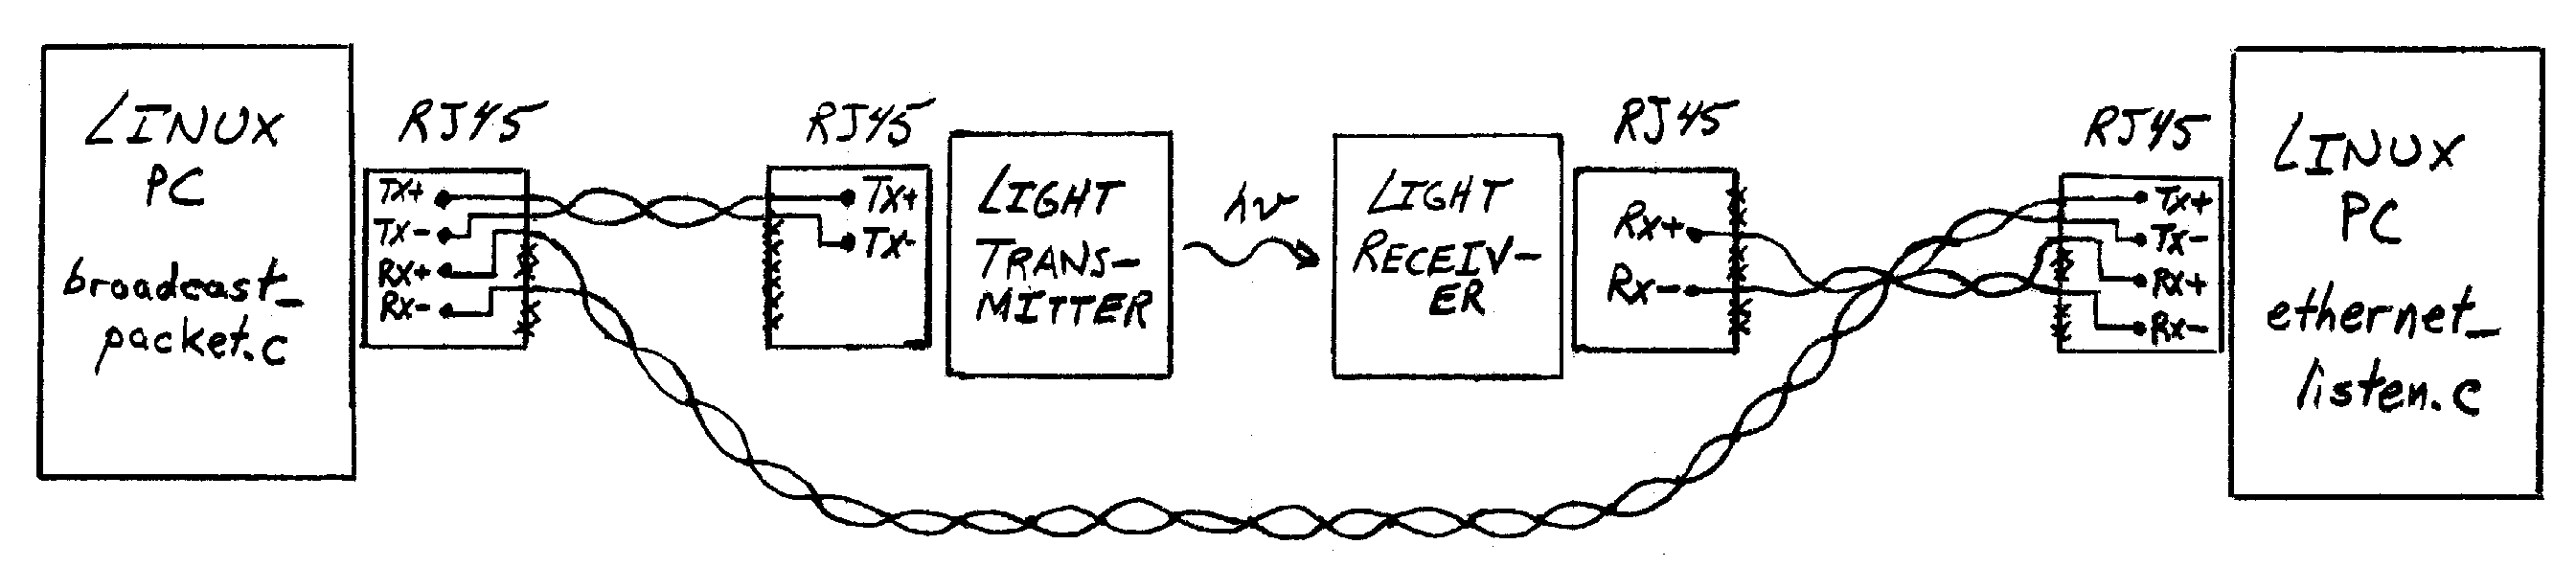 LINUX
PC
broadcast_
packet.c
RJ45
TX+
TX-
RX+
RX-
RJ45
TX+
TX-
LIGHT
TRANS-
MITTER
hν
LIGHT
RECEIV-
ER
RJ45
RX+
RX-
RJ45
TX+
TX-
RX+
RX-
LINUX
PC
ethernet_
listen.c